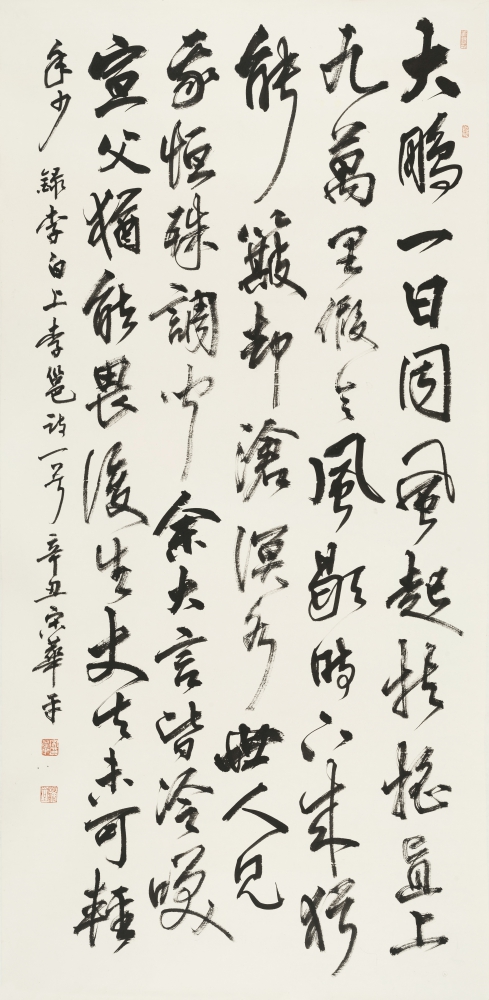 大鵬一日同風起扶搖直上
九萬里假令風歇時下來猶
能簸却滄溟水世人見
我恒殊調聞余大言皆冷笑
宣父猶能畏後生丈夫未可輕
年少 錄李白上李邕詩一首 辛丑宋華平